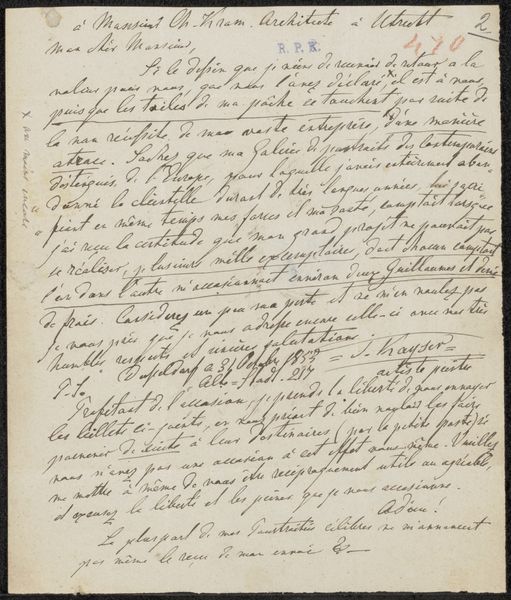 à Monsieur Ch. Kram. Architecte à Utrecht
2
R.P.K.
470
mon cher Monsieur,
Si le dessin que je viens de recevoir de retour a la
valeur pour vous, que vous l'avez déclaré, il est à vous,
puisque les toiles de ma poche se touchent par suite de
la non réussite de mon vaste entreprise, d'une manière
atroce. Sachez que ma Galerie de portraits des contemporains
distingués de l'Europe, pour laquelle j'avais entièrement aban-
donné la clientelle durant de très longues années,
en même temps mes forces et ma santé, comptait lorsque
j'ai reçu la certitude que mon grand projet ne pourrait pas
se réaliser, plusieurs mille exemplaires, dont chacun comptant
l'un dans l'autre m'occasionnait environ deux Guillaumes et demi
de frais. Considerez un peu ma perte et ne m'en voulez pas
je vous prie que je vous adresse encore celle-ci avec mes très
humbles respects et sincères salutations
Dusseldorf a 31 Octobre 1857 = J. Kayser =
P.S. Alte-Stadt 217 artiste peintre
Profitant de l'occasion, je prends la liberté de vous envoyer
les billets ci-joints, en vous priant de bien vouloir les faire
parvenir de suite à leur destinaires (par la petite poste) si
vous n'avez pas une occasion à cet effet vous-même. Veuillez
me mettre à même de vous être reciproquement utile ou agréable,
et excusez la liberté et les peines que je vous occasionne.
Adieu.
La pluspart de mes célèbres ne m'annoncent
pas même le reçu de mon envoi &—